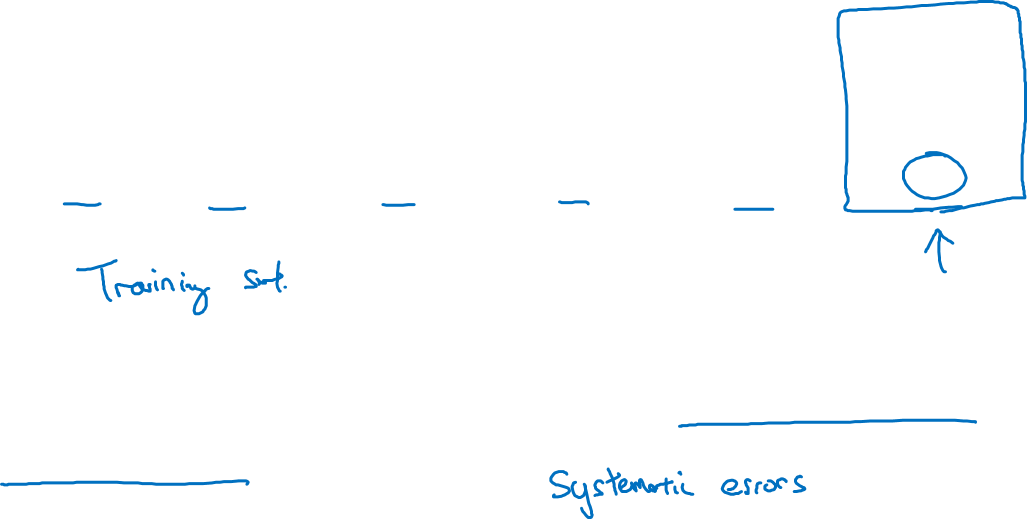 Training set.
Systematic errors